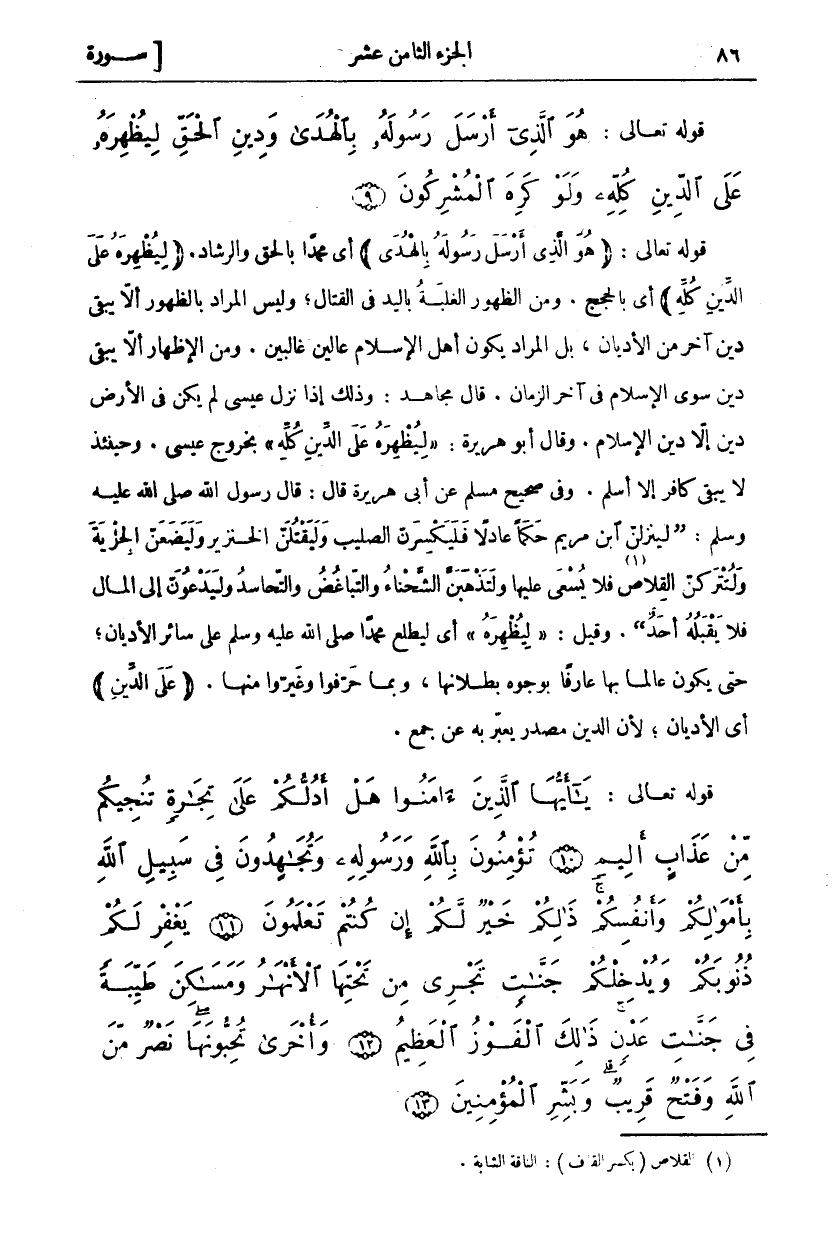 ٨٦ الجزء الثامن عشر [ ســورة
قوله تعـالى : هُوَ ٱلَّذِىٓ أَرْسَلَ رَسُولَهُۥ بِٱلْهُدَىٰ وَدِينِ ٱلْحَقِّ لِيُظْهِرَهُۥ
عَلَى ٱلدِّينِ كُلِّهِۦ وَلَوْ كَرِهَ ٱلْمُشْرِكُونَ ۝٩
قوله تعالى : ﴿ هُوَ الَّذِى أَرْسَلَ رَسُولَهُ بِالْهُدَى ﴾ أى محمدًا بالحق والرشاد. ﴿ لِيُظْهِرَهُ عَلَى
الدِّينِ كُلِّهِ ﴾ أى بالحجج . ومن الظهور الغلبَةُ باليد فى القتال؛ وليس المراد بالظهور ألّا يبقى
دين آخر من الأديان ، بل المراد يكون أهل الإسـلام عالين غالبين . ومن الإظهار ألّا يبقى
دين سوى الإسلام فى آخر الزمان . قال مجاهـد : وذلك إذا نزل عيسى لم يكن فى الأرض
دين إلّا دين الإسلام . وقال أبو هريرة : «لِيُظْهِرَهُ عَلَى الدِّينِ كُلِّهِ» بخروج عيسى . وحينئذ
لا يبقى كافر إلا أسلم . وفى صحيح مسلم عن أبى هريرة قال : قال رسول الله صلى الله عليـه
وسلم : ”لـينزلنّ ٱبن مريم حَكَمًا عادلًا فَلَيَكْسِرَنّ الصليب وَلَيَقْتُلَنّ الخـنزير وَلَيَضَعَنّ الجِزْيةَ
وَلَتُتْرَكنّ القِلَاص(١) فلا يُسْعَى عليها ولَتَذْهَبَنَّ الشَّحْناءُ والتّباغُضُ والتّحاسدُ ولَيَدْعُوَنّ إلى المـال
فلا يَقْبَلُه أحدٌ“ . وقيل : « لِيُظْهِرَهُ » أى ليطلع محمدًا صلى الله عليه وسلم على سائر الأديان؛
حتى يكون عالمـا بها عارفًا بوجوه بطلانها ، وبمـا حَرّفوا وغَيّروا منهـا . ﴿ عَلَى الدِّينِ ﴾
أى الأديان ؛ لأن الدين مصدر يعبّر به عن جمع .
قوله تعـالى : يَـٰٓأَيُّهَـا ٱلَّذِينَ ءَامَنُـوا هَلْ أَدُلُّكُمْ عَلَىٰ تِجَـٰرَةٍ تُنجِيكُم
مِّنْ عَذَابٍ أَلِيـمٍ ۝١٠ تُؤْمِنُونَ بِٱللَّهِ وَرَسُولِهِۦ وَتُجَـٰهِدُونَ فِى سَبِيلِ ٱللَّهِ
بِأَمْوَٰلِكُمْ وَأَنفُسِكُمْ ۚ ذَٰلِكُمْ خَيْرٌ لَّـكُمْ إِن كُنتُمْ تَعْلَمُونَ ۝١١ يَغْفِرْ لَـكُمْ
ذُنُوبَكُمْ وَيُدْخِلْكُمْ جَنَّـٰتٍ تَجْـرِى مِن تَحْتِهَا ٱلْأَنْهَـٰرُ وَمَسَـٰكِنَ طَيِّبَـةً
فِى جَنَّـٰتِ عَدْنٍ ۚ ذَٰلِكَ ٱلْفَـوْزُ ٱلْعَظِيمُ ۝١٢ وَأُخْرَىٰ تُحِبُّونَهَا ۖ نَصْرٌ مِّنَ
ٱللَّهِ وَفَتْحٌ قَرِيبٌ ۗ وَبَشِّرِ ٱلْمُؤْمِنِينَ ۝١٣
(١) القلاص (بكسر القاف) : الناقة الشابة .